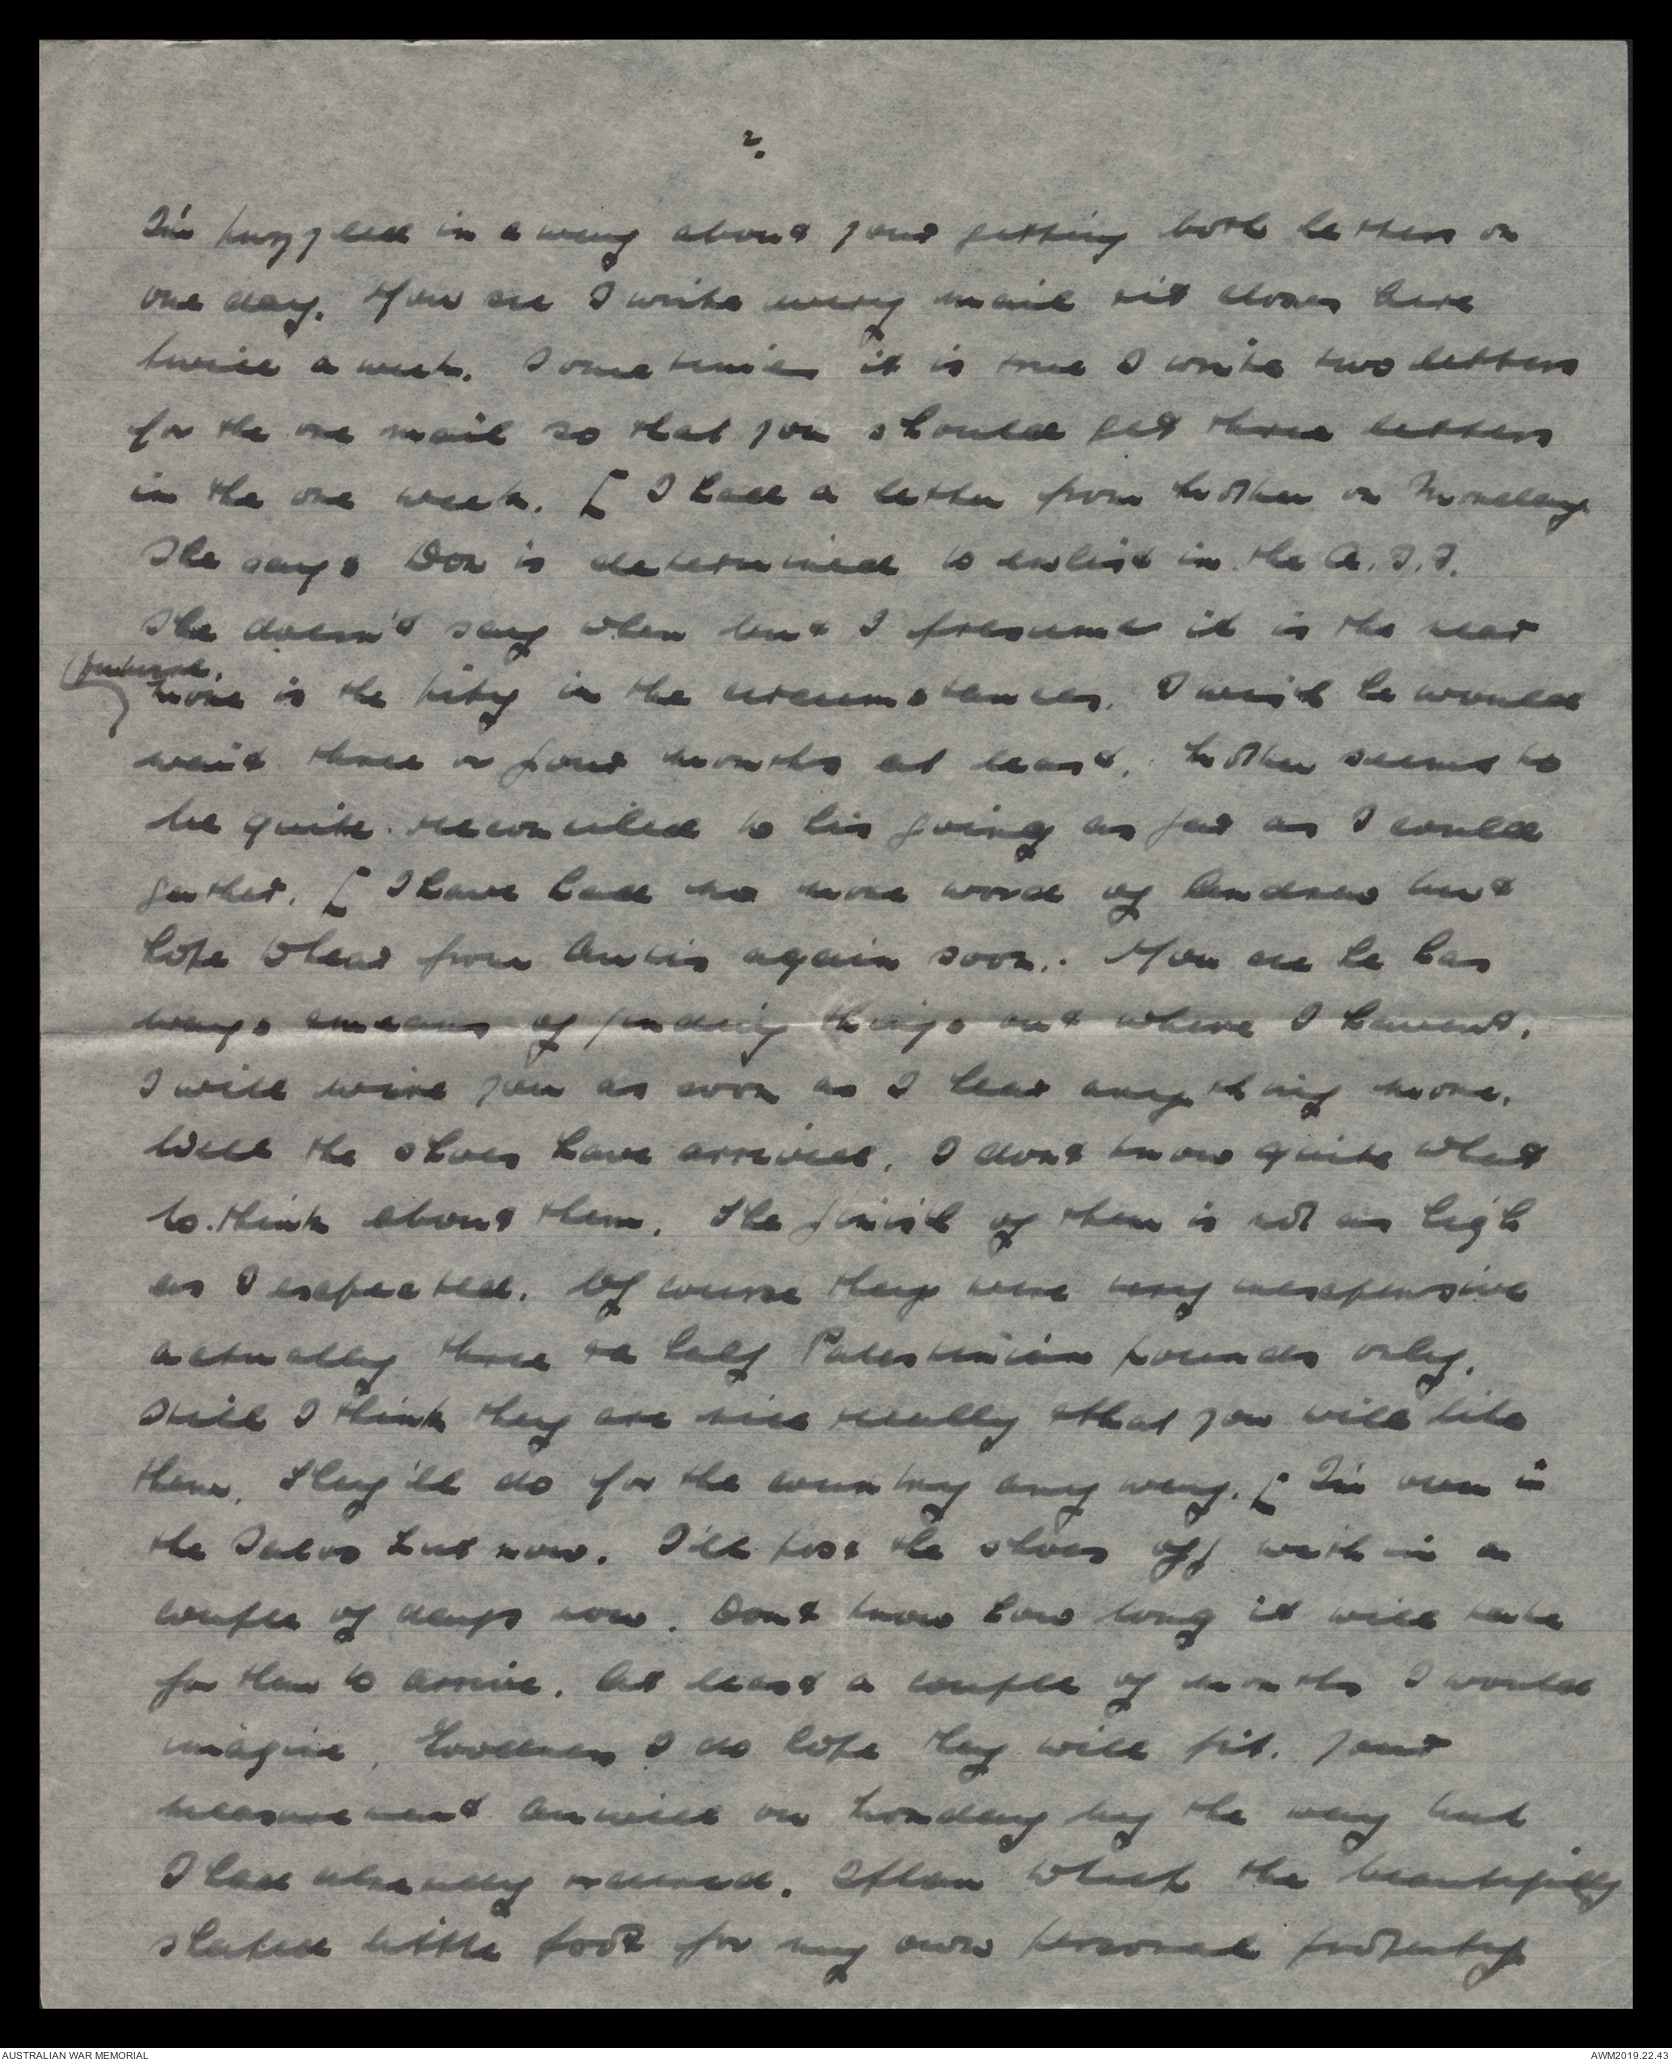 2.
I'm puzzled in a way about your getting both letters on
one day. You see I write every mail & it closes here
twice a week. Sometimes it is true I write two letters
for the one mail so that you should get three letters
in the one week. [ I had a letter from Mother on Monday
She says Don is determined to enlist in the A.I.F.
She doesn't say when but I presume it is the near
(future.
More is the pity in the circumstances. I wish he would
wait three or four months at least. Mother seems to
be quite reconciled to his going as far as I could
gather. [ I have had no more word of Andrew but
hope to hear from again soon. You see he has
ways & means of finding things out where I haven't.
I will wire you as soon as I hear anything more.
Well the shoes have arrived. I dont know quite what
to think about them. The finish of them is not as high
as I expected. Of course they were very inexpensive
actually three & a half Palestinian pounds only.
Still I think they are nice really & that you will like
them. They'll do for the country any way. [ I'm over in
the Salvos hut now. I'll post the shoes off within a
couple of days now. Dont know how long it will take
for them to arrive. At least a couple of months I would
imagine. I do hope they will fit. Your
measurement arrived on Monday by the way but
I had already ordered. I'll the beautifully
shaped little foot for my own personal property
AUSTRALIAN WAR MEMORIAL
AWM2019.22.43